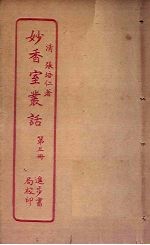 清 張培仁著
妙香室叢話
第三冊
進步書
局校印